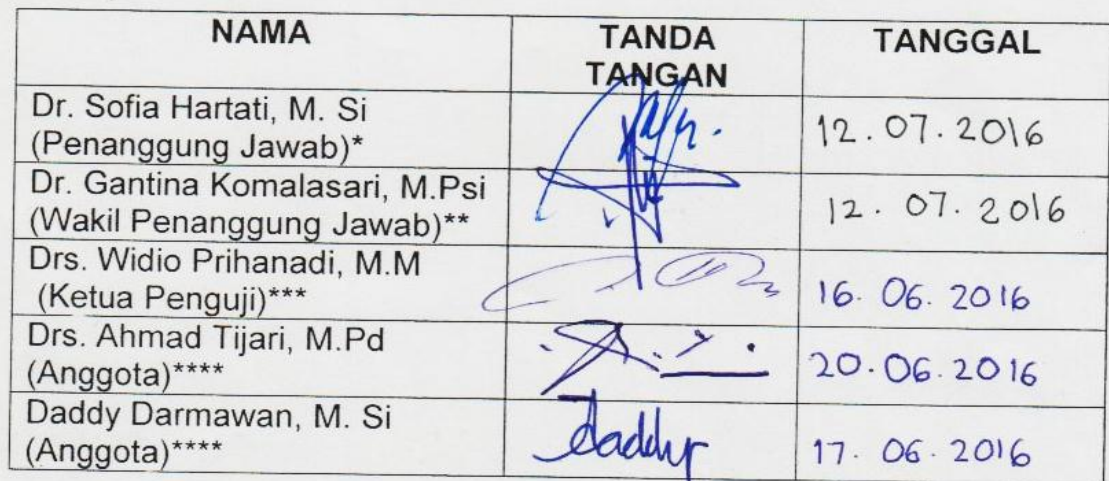 NAMA TANDA TANGAN TANGGAL
Dr. Sofia Hartati, M. Si
(Penanggung Jawab)* 12.07.2016
Dr. Gantina Komalasari, M.Psi
(Wakil Penanggung Jawab)** 12.07.2016
Drs. Widio Prihanadi, M.M
(Ketua Penguji)*** 16.06.2016
Drs. Ahmad Tijari, M.Pd
(Anggota)**** 20.06.2016
Daddy Darmawan, M. Si
(Anggota)**** daddy 17.06.2016